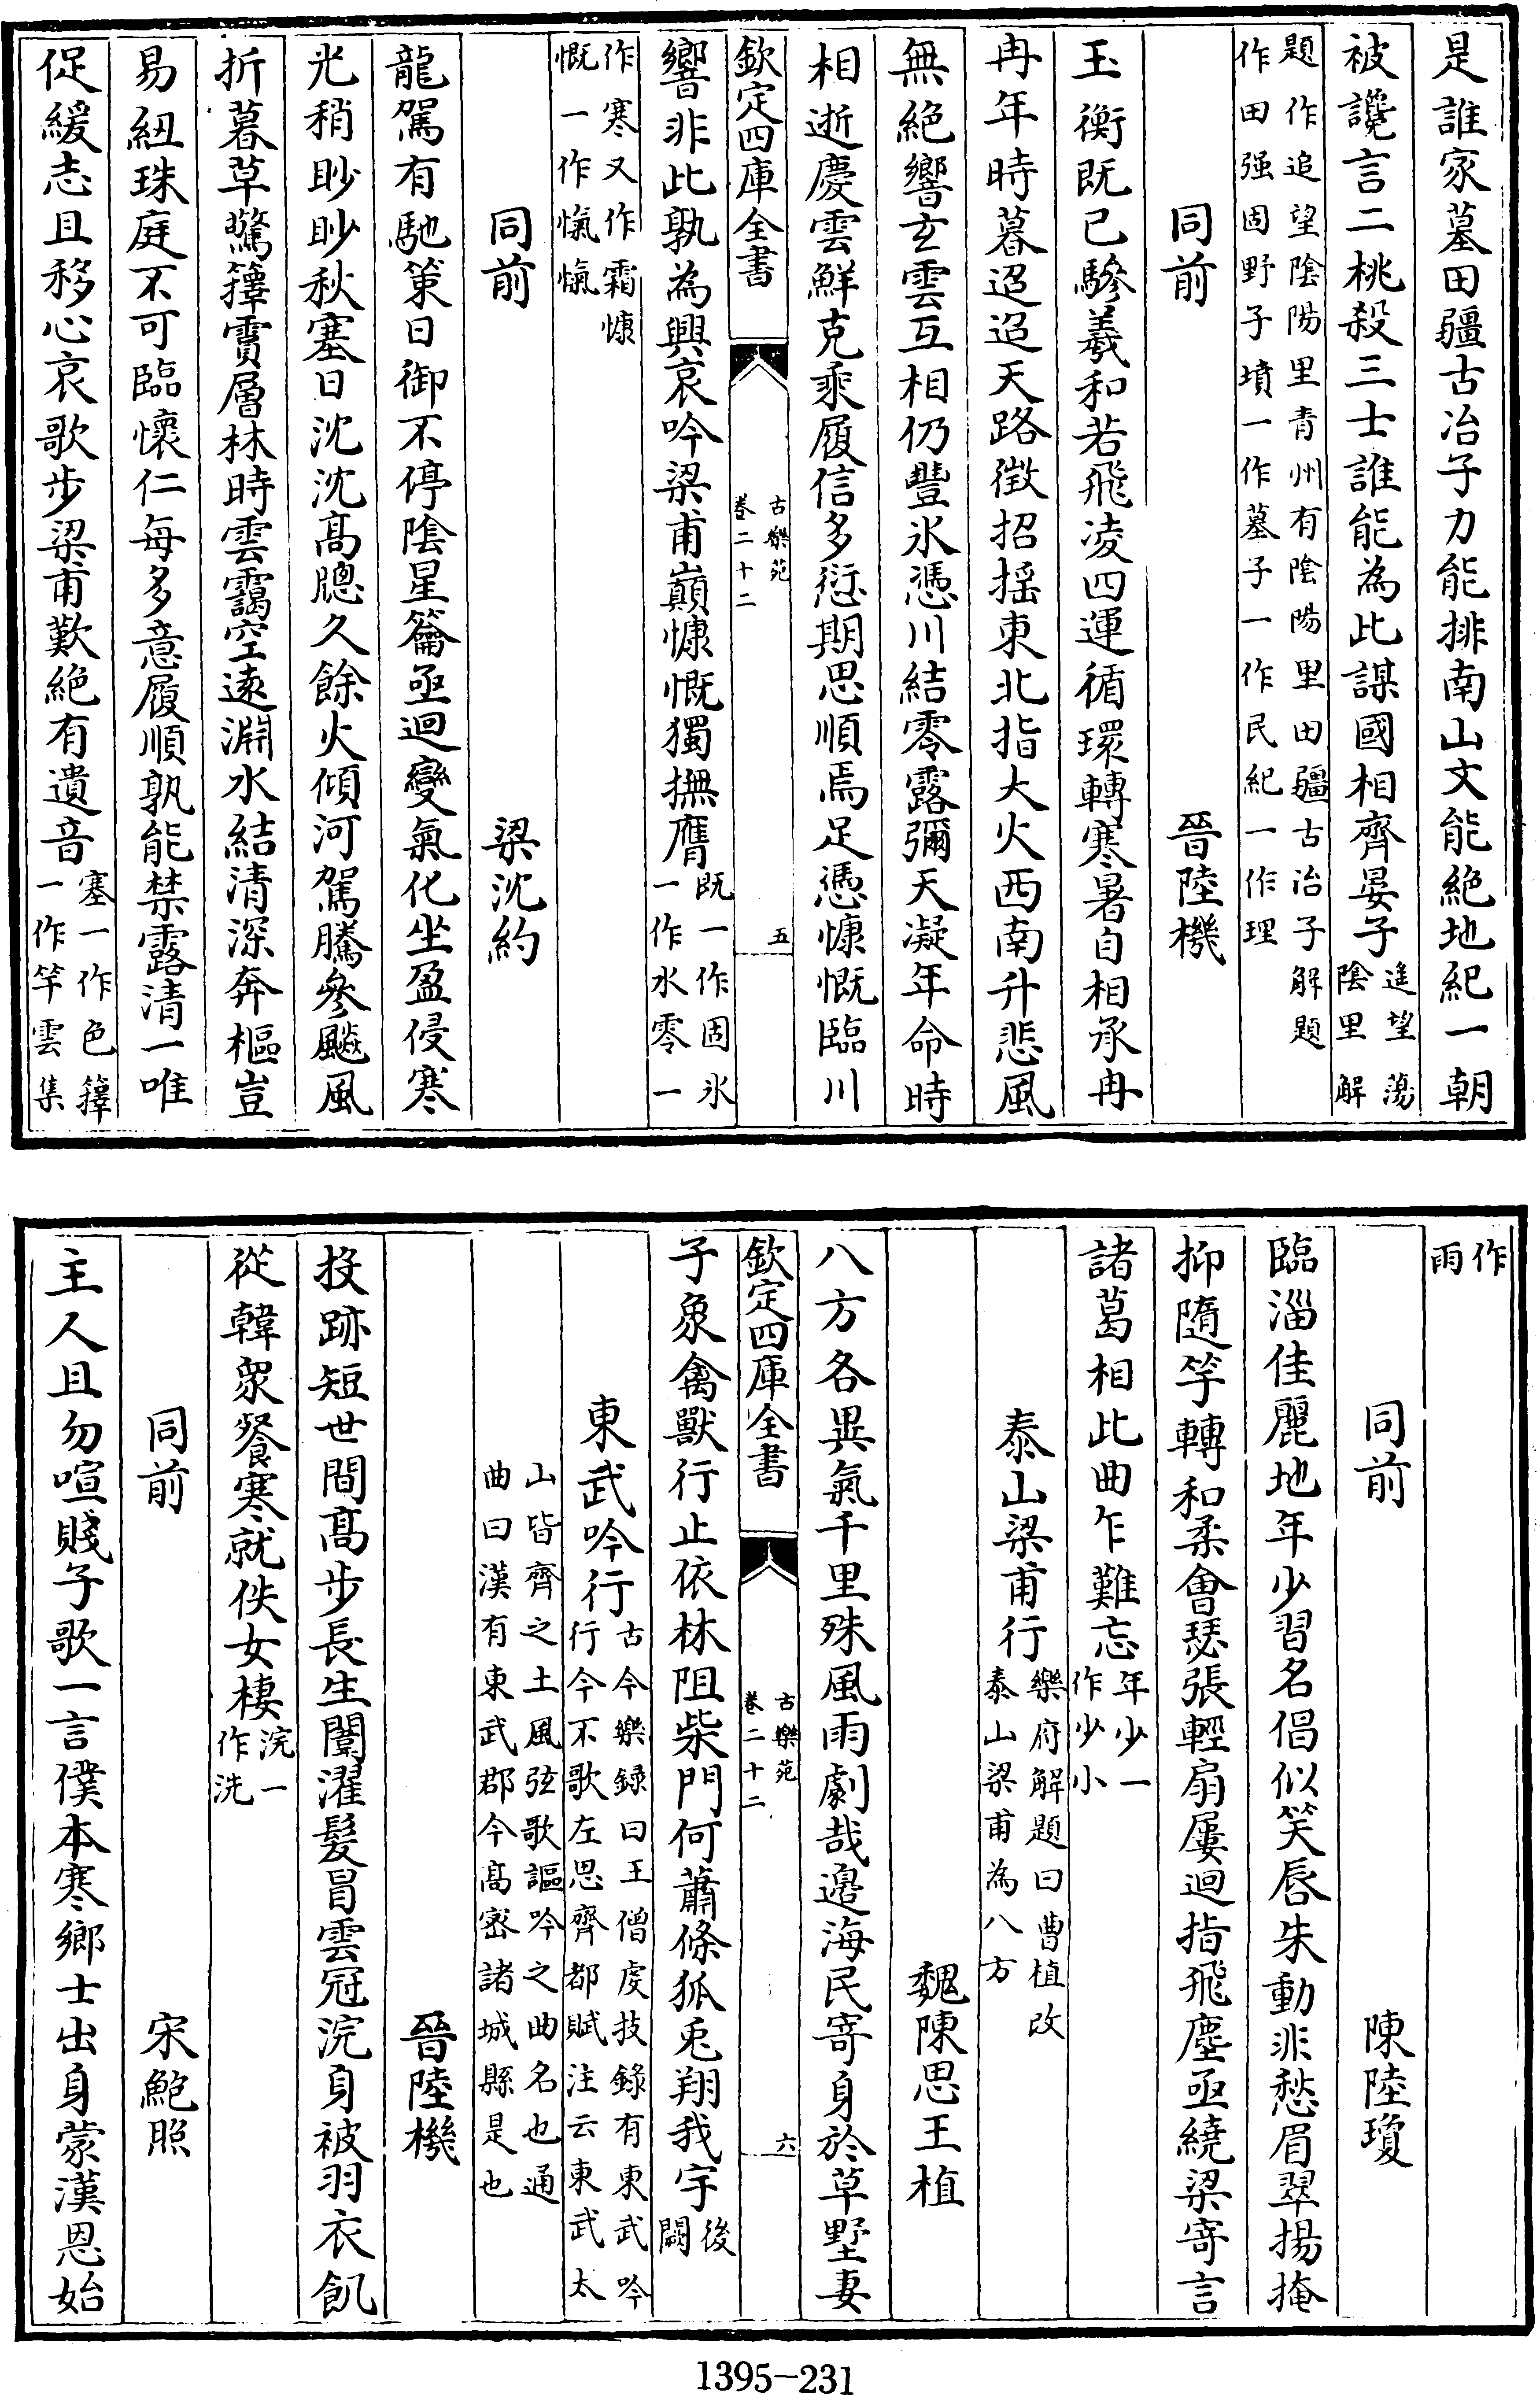 是誰家墓田疆古冶子力能排南山文能絶地紀一朝
被讒言二桃殺三士誰能為此謀國相齊晏子遥望蕩
陰里解
題作追望陰陽里青州有陰陽里田疆古冶子解題
作田强固野子墳一作墓子一作民紀一作理
同前　晉陸機
玉衡既已驂羲和若飛凌四運循環轉寒暑自相承冉
冉年時暮迢迢天路徴招摇東北指大火西南升悲風
無絶響玄雲互相仍豐氷憑川結零露彌天凝年命時
相逝慶雲鮮克乘履信多愆期思順焉足憑慷慨臨川
欽定四庫全書
古樂苑
卷二十二
五
響非此孰為興哀吟梁甫巔慷慨獨撫膺既一作固氷
一作水零一
作寒又作霜慷
慨一作愾愾
同前　梁沈約
龍駕有馳策日御不停陰星籥亟迴變氣化坐盈侵寒
光稍眇眇秋塞日沈沈髙牕久餘火傾河駕騰參飈風
折暮草驚籜霣層林時雲靄空遠淵水結清深奔樞豈
易紐珠庭不可臨懷仁每多意履順孰能禁露清一唯
促緩志且移心哀歌步梁甫歎絶有遺音塞一作色籜
一作竿雲集
作
雨
同前　陳陸瓊
臨淄佳麗地年少習名倡似笑唇朱動非愁眉翠揚掩
抑隨竽轉和柔會瑟張輕扇屢迴指飛塵亟繞梁寄言
諸葛相此曲乍難忘年少一
作少小
泰山梁甫行樂府解題曰曹植改
泰山梁甫為八方
魏陳思王植
八方各異氣千里殊風雨劇哉邉海民寄身於草墅妻
欽定四庫全書
古樂苑
卷二十二
六
子象禽獸行止依林阻柴門何蕭條狐兎翔我宇後
闕
東武吟行古今樂録曰王僧虔技録有東武吟
行今不歌左思齊都賦注云東武太
山皆齊之土風弦歌謳吟之曲名也通
曲曰漢有東武郡今髙宻諸城縣是也
晉陸機
投跡短世間髙步長生闈濯髮冒雲冠浣身被羽衣飢
從韓衆餐寒就佚女棲浣一
作洗
同前　宋鮑照
主人且勿喧賤子歌一言僕本寒鄉士出身蒙漢恩始
1395-231